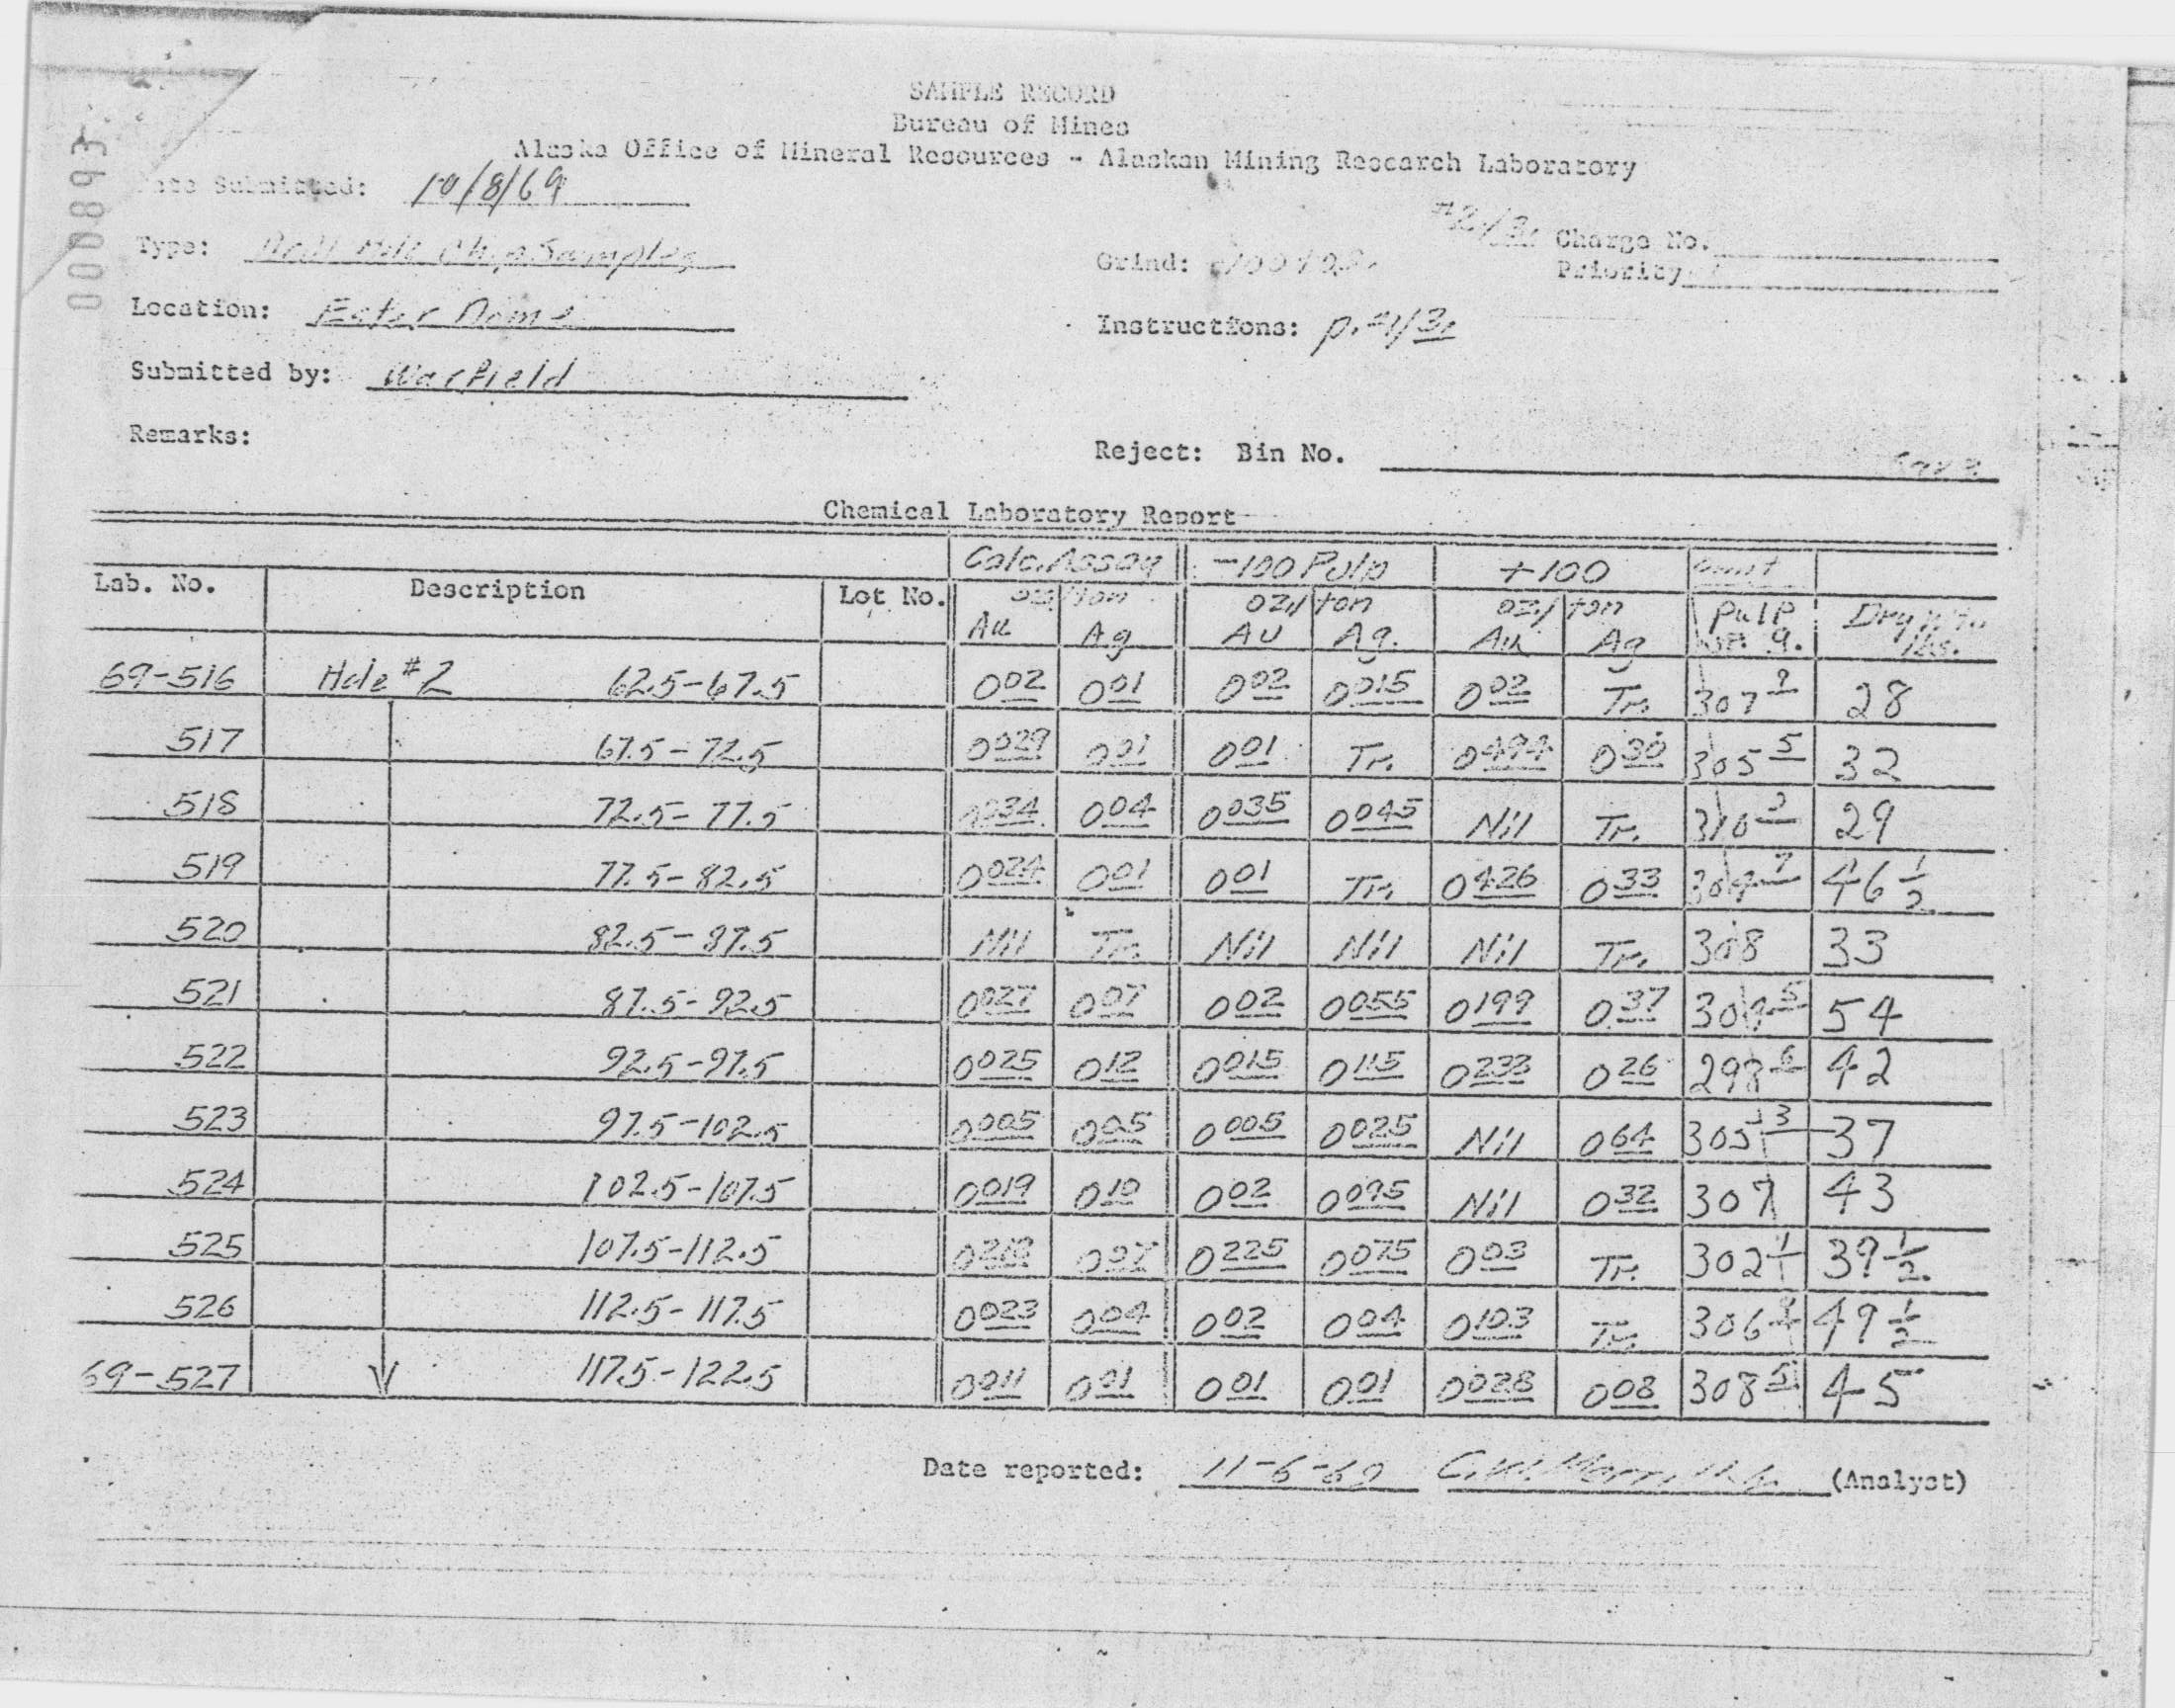 000893
SAMPLE RECORD
Bureau of Mines
Alaska Office of Mineral Resources - Alaskan Mining Research Laboratory
Date Submitted: 10/8/69
Charge No.
Type: Drill Hole Chip Samples
Grind: -100
Priority
Location: Ester Dome
Instructions:
Submitted by: Warfield
Remarks:
Reject: Bin No. Save
Chemical Laboratory Report
Calc. Assay -100 Pulp +100
Lab. No. Description Lot No. oz/ton oz/ton oz/ton Pulp Dry
Au Ag Au Ag. Au Ag wt. g. lbs.
69-516 Hole #2 62.5-67.5 0 02 0 01 0 02 0 015 0 02 Tr. 307 28
517 67.5-72.5 0 029 0 01 0 01 Tr. 0 494 0 30 305 5 32
518 72.5-77.5 034 0 04 0 035 0 045 Nil Tr. 310 29
519 77.5-82.5 0 024 0 01 0 01 Tr. 0 426 0 33 309 7 46 1/2
520 82.5-87.5 Nil Tr. Nil Nil Nil Tr. 308 33
521 87.5-92.5 0 027 0 07 0 02 0 055 0 199 0 37 309 5 54
522 92.5-97.5 0 025 0 12 0 015 0 115 0 233 0 26 298 6 42
523 97.5-102.5 0 005 0 05 0 005 0 025 Nil 0 64 305 3 37
524 102.5-107.5 0 019 0 10 0 02 0 095 Nil 0 32 307 43
525 107.5-112.5 0 07 0 225 0 075 0 03 Tr. 302 1 39 1/2
526 112.5-117.5 0 023 0 04 0 02 0 04 0 103 Tr. 306 49 1/2
69-527 117.5-122.5 0 011 0 01 0 01 0 01 0 028 0 08 308 5 45
Date reported: 11-6-69 (Analyst)